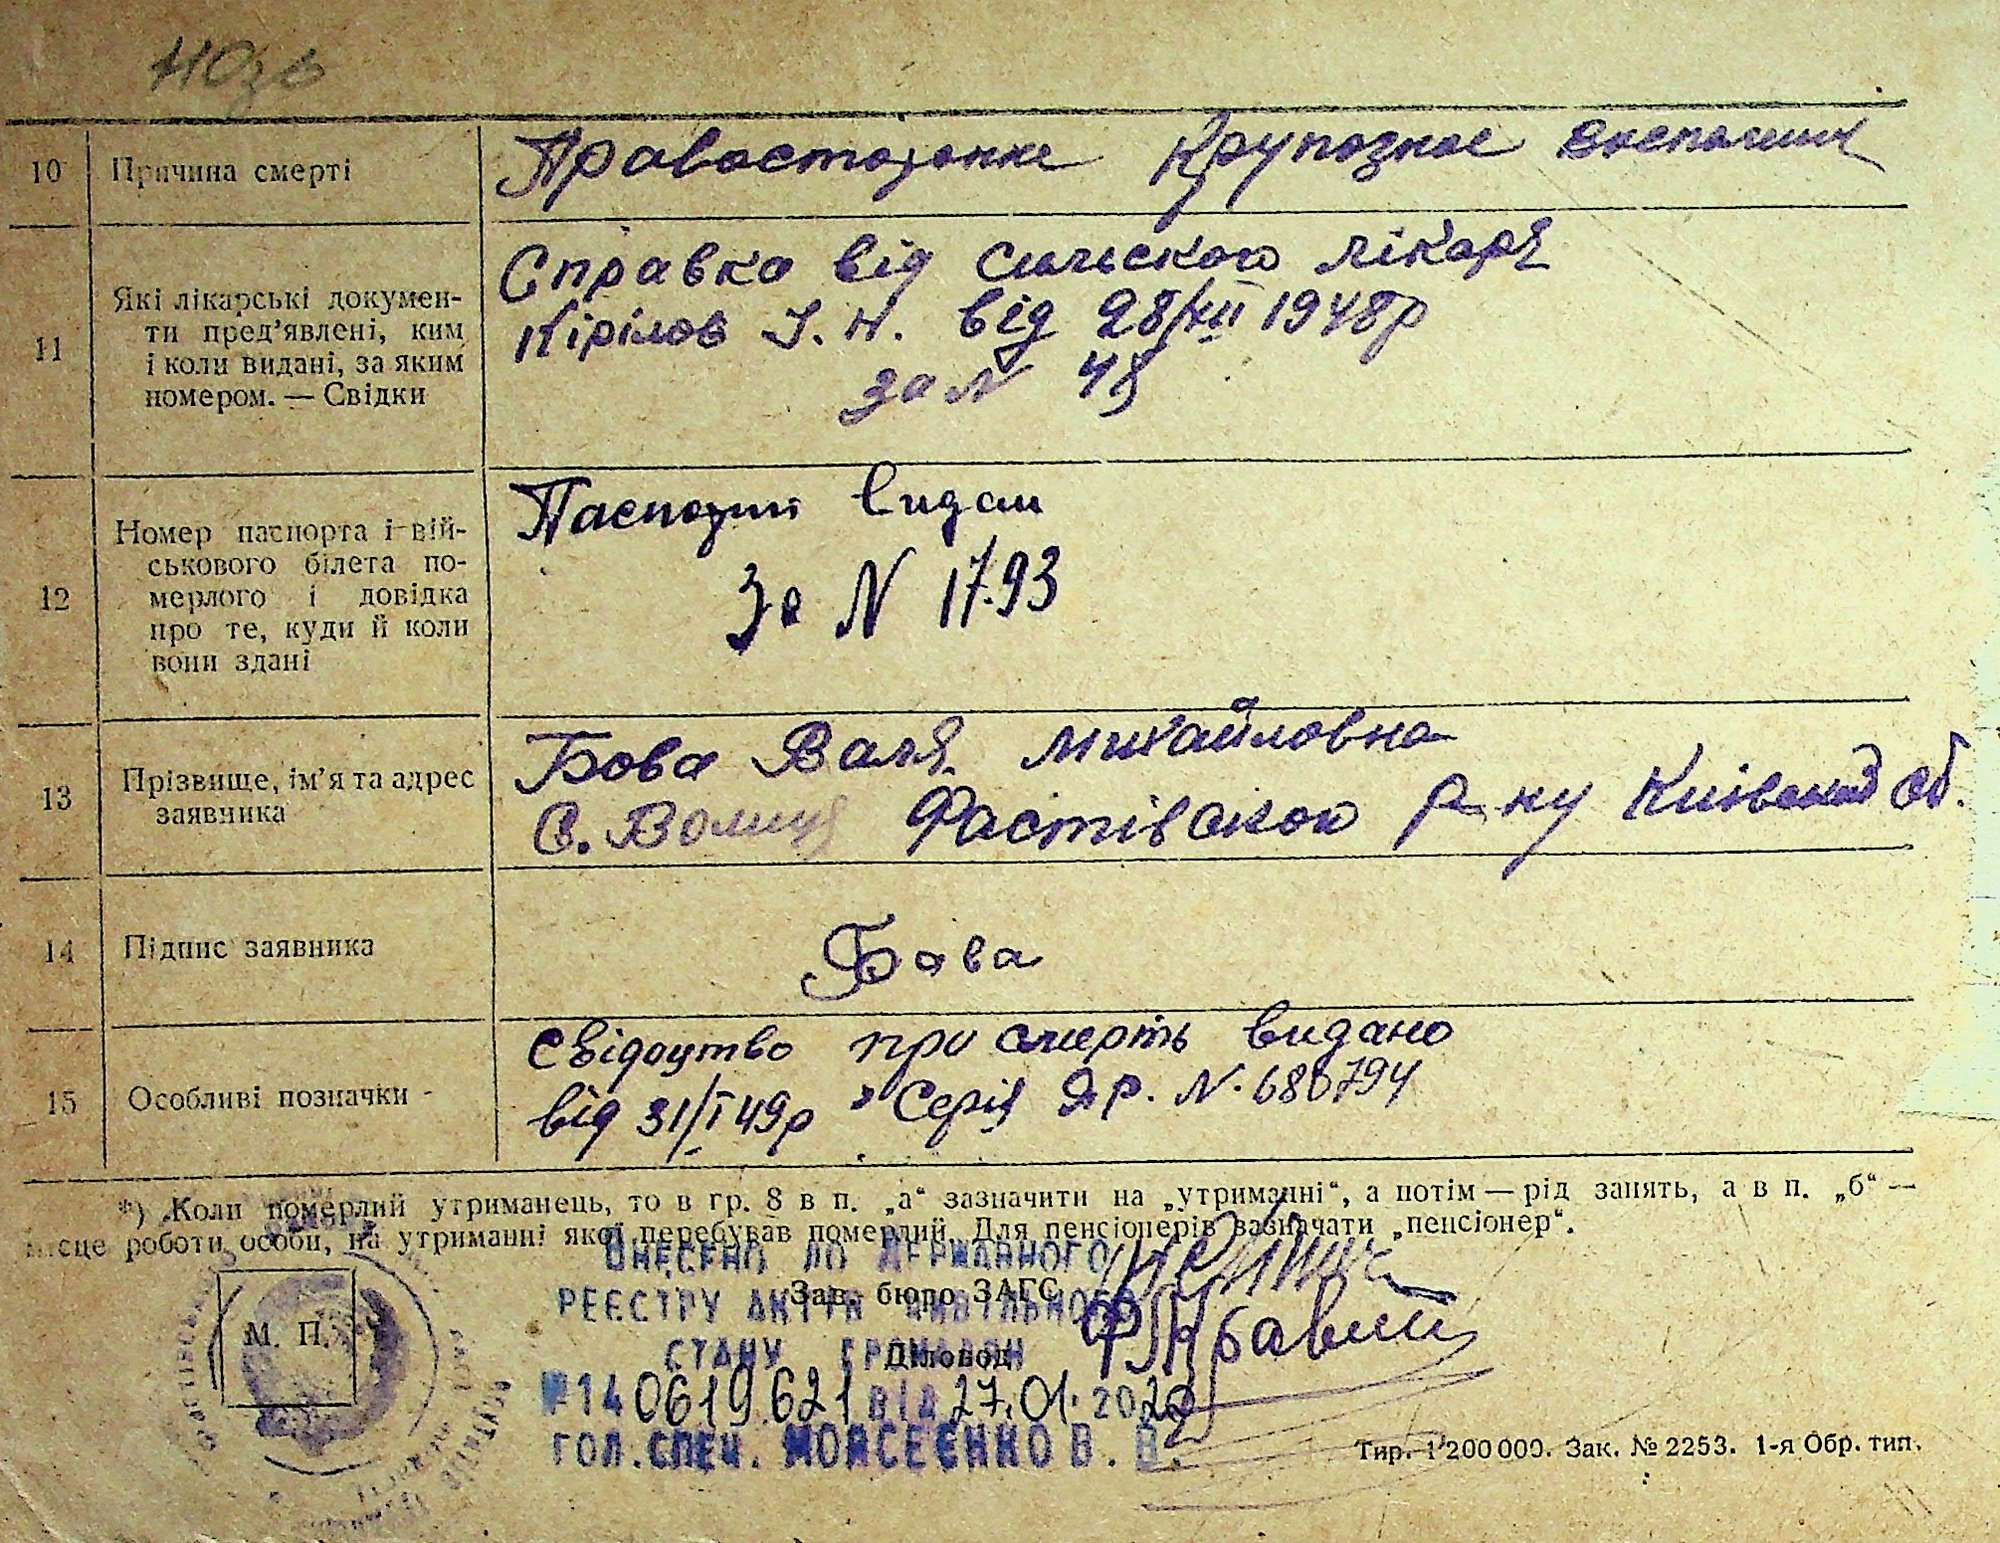 10 Причина смерті
Правостороннє Крупозное воспаление
11 Які лікарські докумен-
ти пред’явлені, ким
і коли видані, за яким
номером. — Свідки
Справка від сильского лікаря
Кірілов І. Н. від 28/XII 1948р
за N 48
12 Номер паспорта і вій-
ськового білета по-
мерлого і довідка
про те, куди й коли
вони здані
Паспорт
За N 1793
13 Прізвище, ім’я та адрес
заявника
Бова Валя Михайловна
С. Волиця Фастівского р-ну Київской об.
14 Підпис заявника
Бова
15 Особливі позначки -
Свідоцтво про смерть видано
від 31/I 49р Серія ЯР. N. 680794
*) Коли померлий утриманець, то в гр. 8 в п. „а“ зазначити на „утриманні“, а потім — рід занять, а в п. „б“ —
місце роботи особи, на утриманні якої перебував померлий. Для пенсіонерів зазначати „пенсіонер“.
ВНЕСЕНО ДО ДЕРЖАВНОГО
Зав. бюро ЗАГС
РЕЄСТРУ АКТІВ ЦИВІЛЬНОГО
М. П.
СТАНУ ГРОМАДЯН
Діловод
№140619621 ВІД 27.01.2020
ГОЛ.СПЕЦ. МОИСЕЄНКО В. В.
Тир. 1 200 000. Зак. № 2253. 1-я Обр. тип.